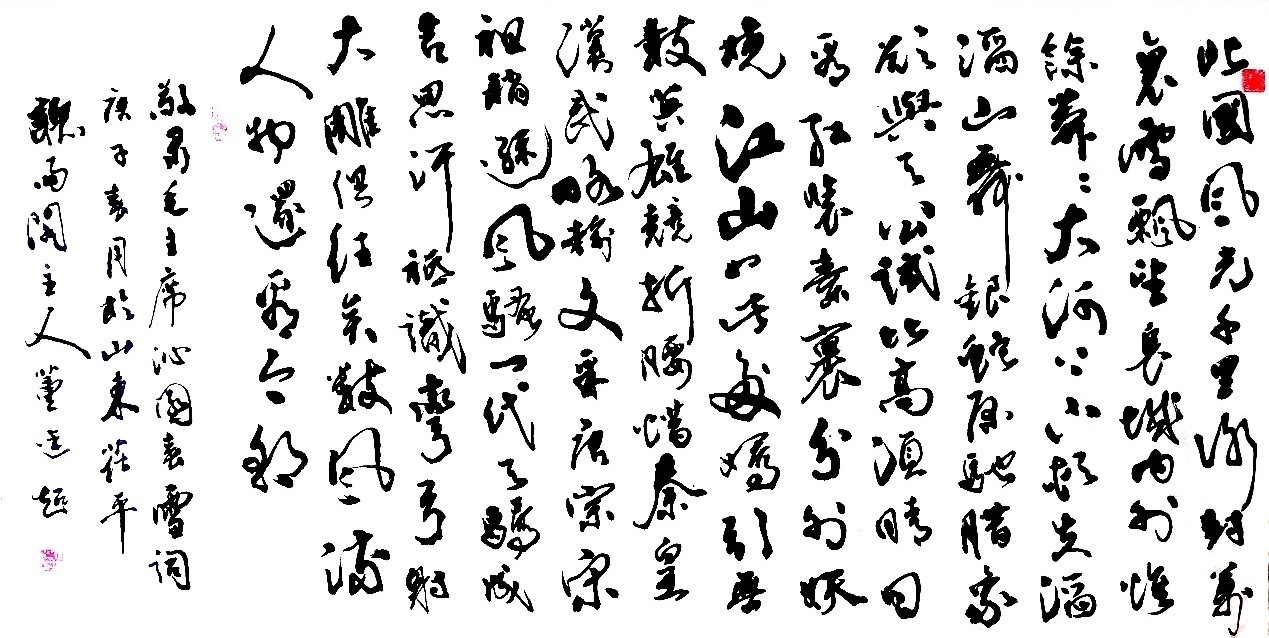 北國風光千里冰封萬
裏雪飄望長城內外惟
餘莽々大河上下頓失滔
滔山舞銀蛇原馳腊象
欲與天公試比高須晴日
看紅裝素裹分外妖
嬈江山如此多嬌引無
數英雄競折腰惜秦皇
漢武略輸文采唐宗宋
祖稍遜風騷一代天驕成
吉思汗祗識彎弓射
大雕俱往矣數風流
人物還看今朝
敬录毛主席沁園春雪詞
庚子春月於山東茌平
聽雨閣主人董超